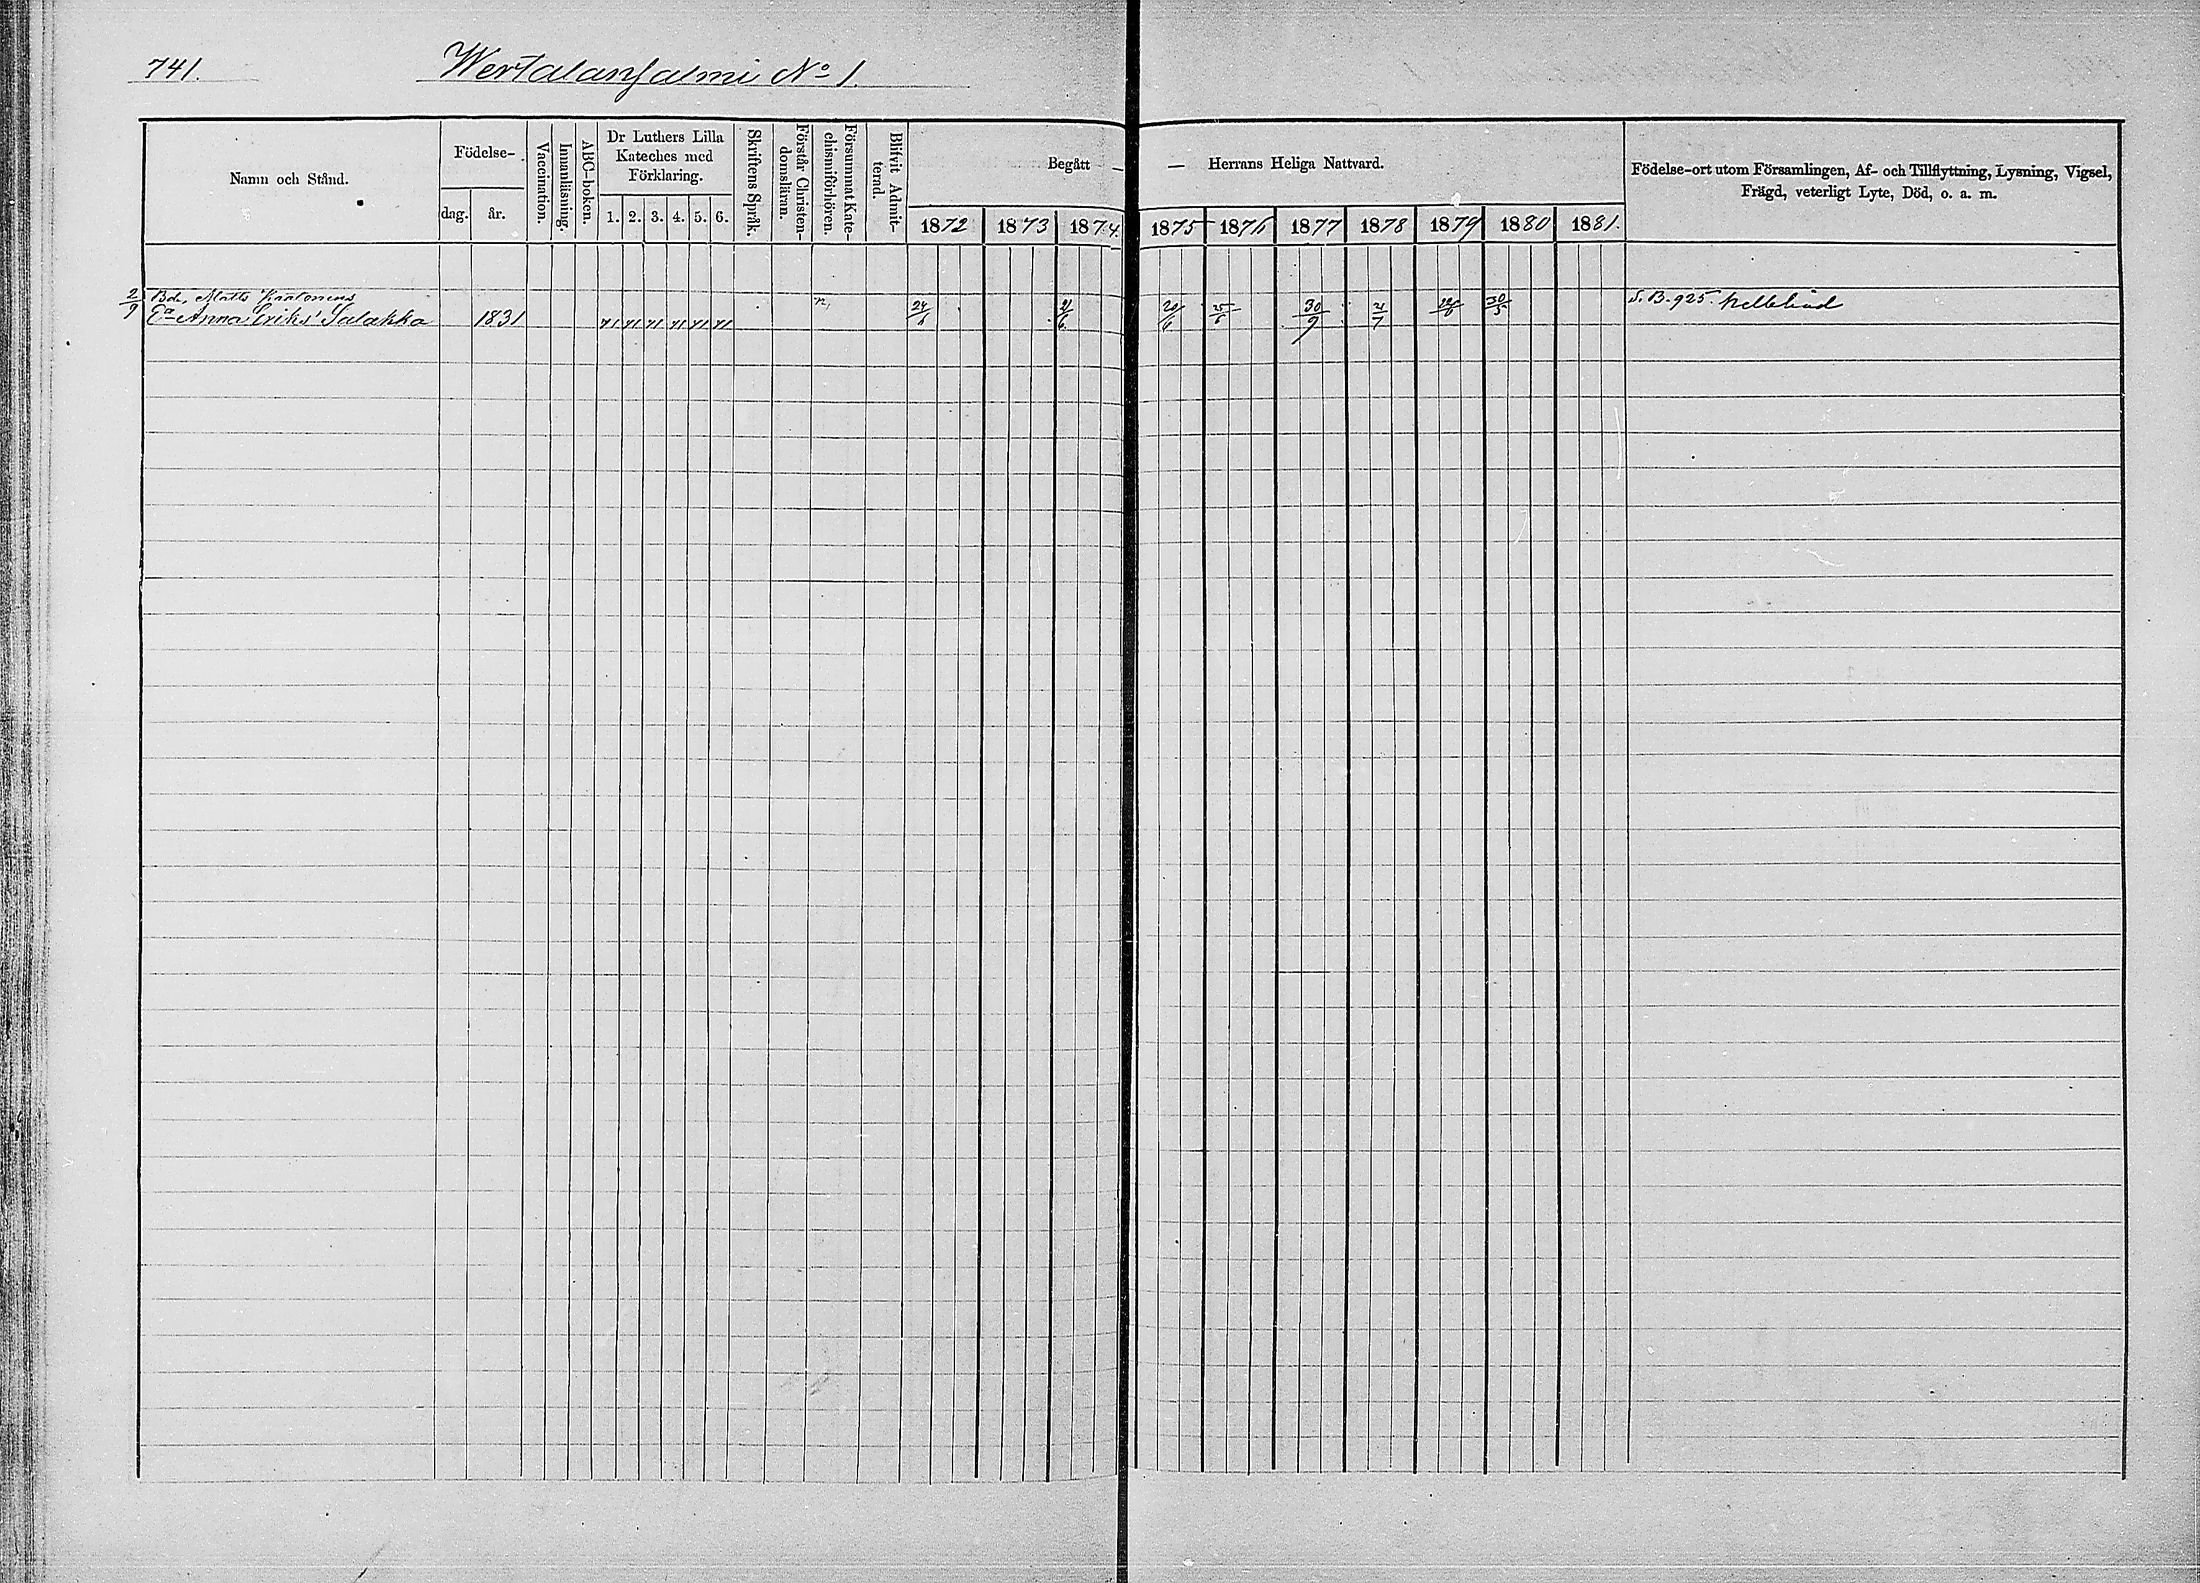 741. Wertalansalmi No 1.
Namn och Stånd.
Födelse-
dag. år.
Vaccination.
Innanläsning.
ABC-boken.
Dr Luthers Lilla
Kateches med
Förklaring.
1. 2. 3. 4. 5. 6.
Skriftens Språk.
Förstår Christen-
domsläran.
Försummat Kate-
chismiförhören.
Blifvit Admit-
terad.
Begått — — Herrans Heliga Nattvard.
1872 1873 1874. 1875 1876 1877 1878 1879 1880 1881.
Födelse-ort utom Församlingen, Af- och Tillflyttning, Lysning, Vigsel,
Frägd, veterligt Lyte, Död, o. a. m.
2/9 Bd. Matts
Ea Anna Eriks' Salakka 1831 24/6 21/6 20/6 25/6 30/9 21/7 30/5 S. B. 925. helblind